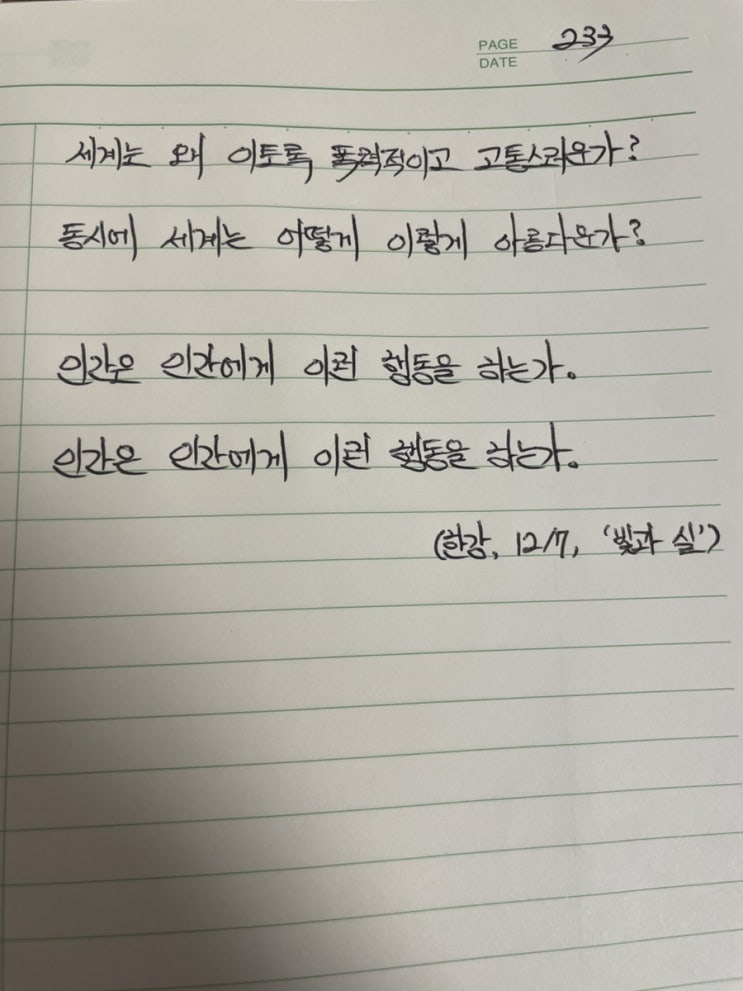 PAGE 233
DATE
세계는 왜 이토록 폭력적이고 고통스러운가?
동시에 세계는 어떻게 이렇게 아름다운가?
인간은 인간에게 이런 행동을 하는가.
인간은 인간에게 이런 행동을 하는가.
(한강, 12/7, '빛과 실')